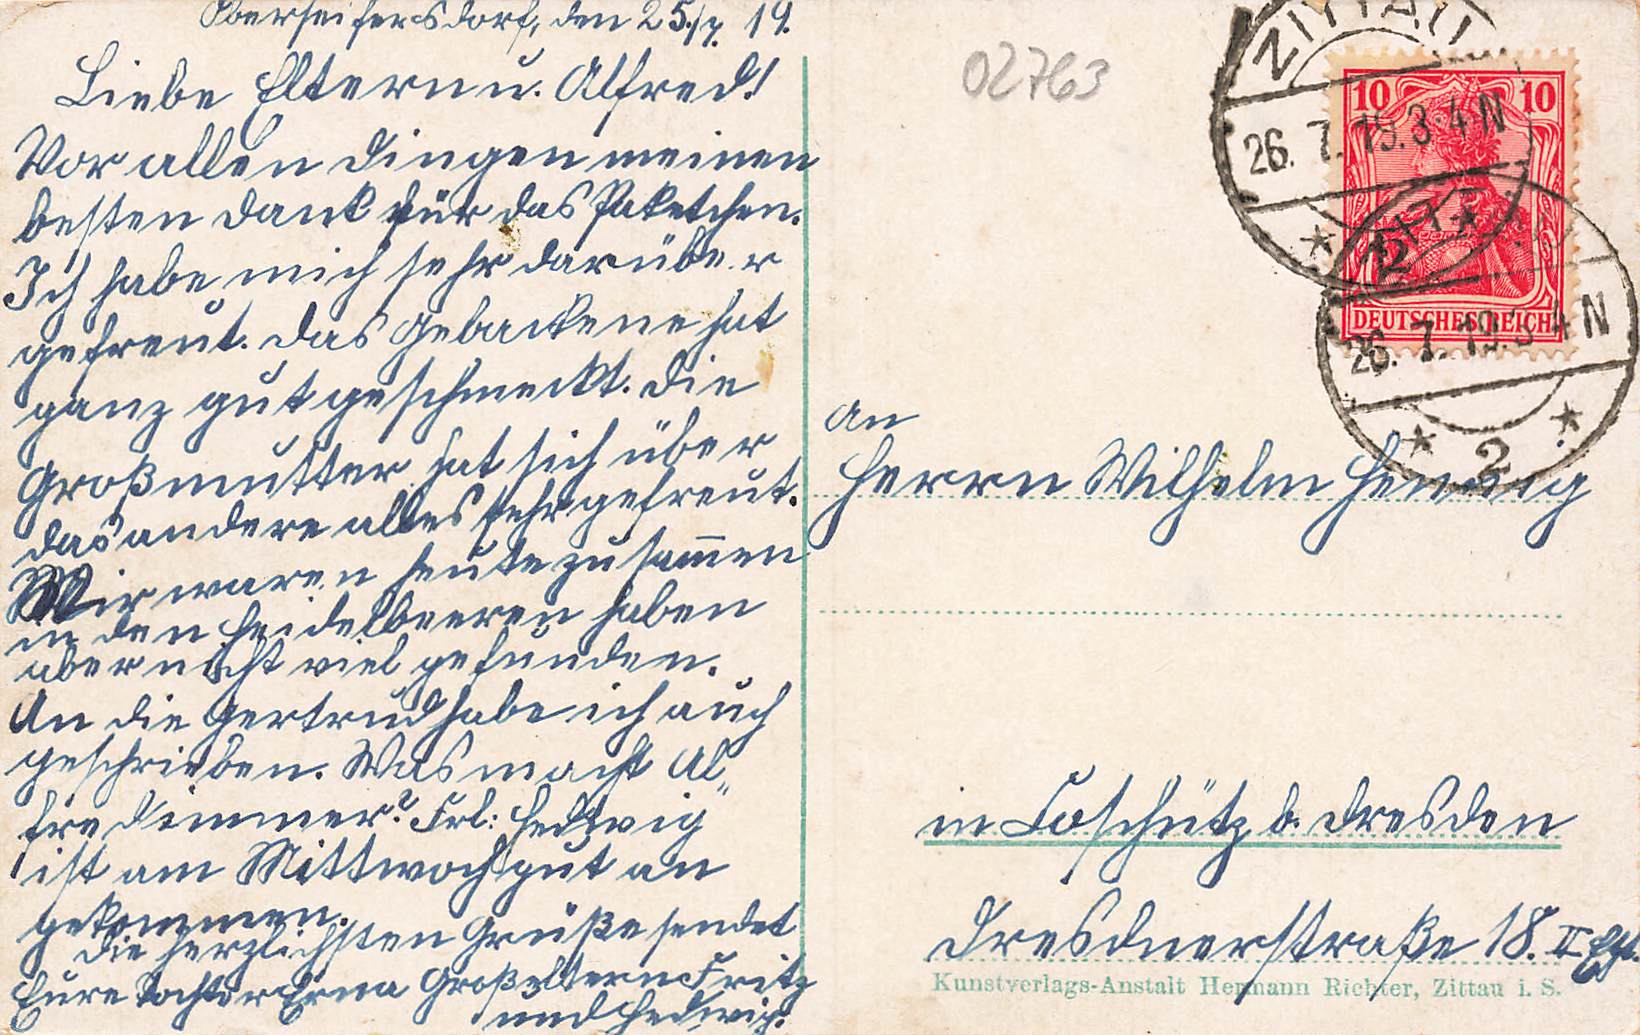 Oberseifersdorf, den 25./7. 19.
Liebe Eltern u. Alfred!
Vor allen Dingen meinen
besten Dank für das Paketchen.
Ich habe mich sehr darüber
gefreut. Das Gebackene hat
ganz gut geschmeckt. Die
Großmutter hat sich über
das andere alles sehr gefreut.
Wir waren heute zusammen
in den Heidelbeeren haben
aber nicht viel gefunden.
An die Gertrud habe ich auch
geschrieben. Was macht Al„
fred immer? Frl: Hedwig
ist am Mittwoch gut an
gekommen.
Die herzlichsten Grüße sendet
Eure Tochter Erna Großeltern Fritz
und Hedwig.
02763
ZITTAU
26. 7. 19. 3-4 N
* 2 *
10 10
DEUTSCHES REICH
ZITT
26. 7. 19. 3-4 N
* 2 *
An
Herrn Wilhelm Hennig
in Coschütz b. Dresden
Dresdnerstraße 18. II Etg.
Kunstverlags-Anstalt Hermann Richter, Zittau i. S.